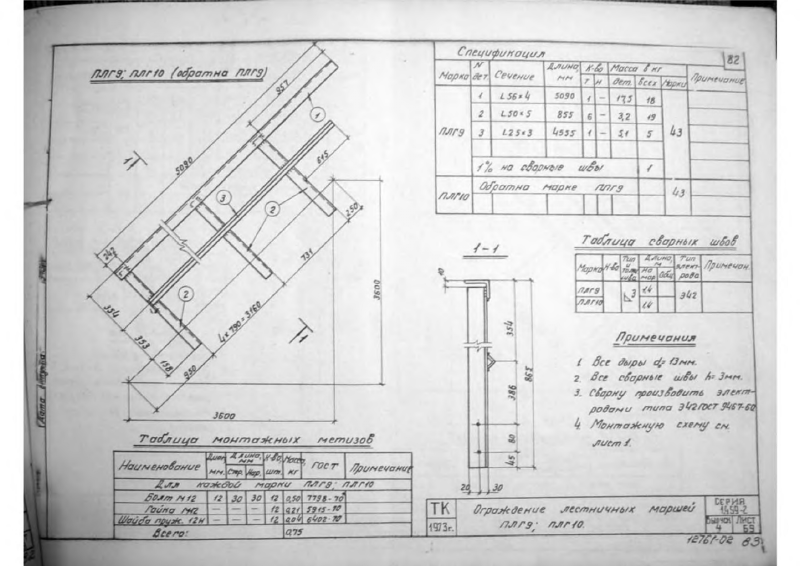 82
ПЛГ9; ПЛГ10 (обратна ПЛГ9)
957
1
5090
615
1
3
2
250
24
731
354
2
353
4×790=3160
1
3600
138
930
3600
Спецификация
Марка N дет. Сечение Длина, мм К-во Т Н Масса в кг дет. всех марки Примечание
ПЛГ9 1 L56×4 5090 1 – 17,5 18 43
2 L50×5 855 6 – 3,2 19
3 L25×3 4555 1 – 5,1 5
1% на сварные швы 1
ПЛГ10 Обратна марке ПЛГ9 43
1-1
10
354
865
386
80
45
20 30
Таблица сварных швов
Марка К-во Тип и толщ. шва Длина, м на мар. Общ. Тип элект-рода Примечан.
ПЛГ9 3 1.4 Э42
ПЛГ10 1.4
Примечания
1 Все дыры d=13мм.
2. Все сварные швы h=3мм.
3. Сварку производить элект-
родами типа Э42 ГОСТ 9467-60
4 Монтажную схему см.
лист 1.
Таблица монтажных метизов
Наименование Диам. мм. Длина, мм Стр. Нар. К-во, шт. Масса, кг ГОСТ Примечание
Для каждой марки ПЛГ9; ПЛГ10
Болт М12 12 30 30 12 0,50 7798-70
Гайка М12 – – – 12 0,21 5915-70
Шайба пруж. 12Н – – – 12 0,04 6402-70
Всего: 0,75
ТК
1973г.
Ограждение лестничных маршей
ПЛГ9; ПЛГ10.
СЕРИЯ
1.459-2
Выпуск Лист
4 59
12761-02 83